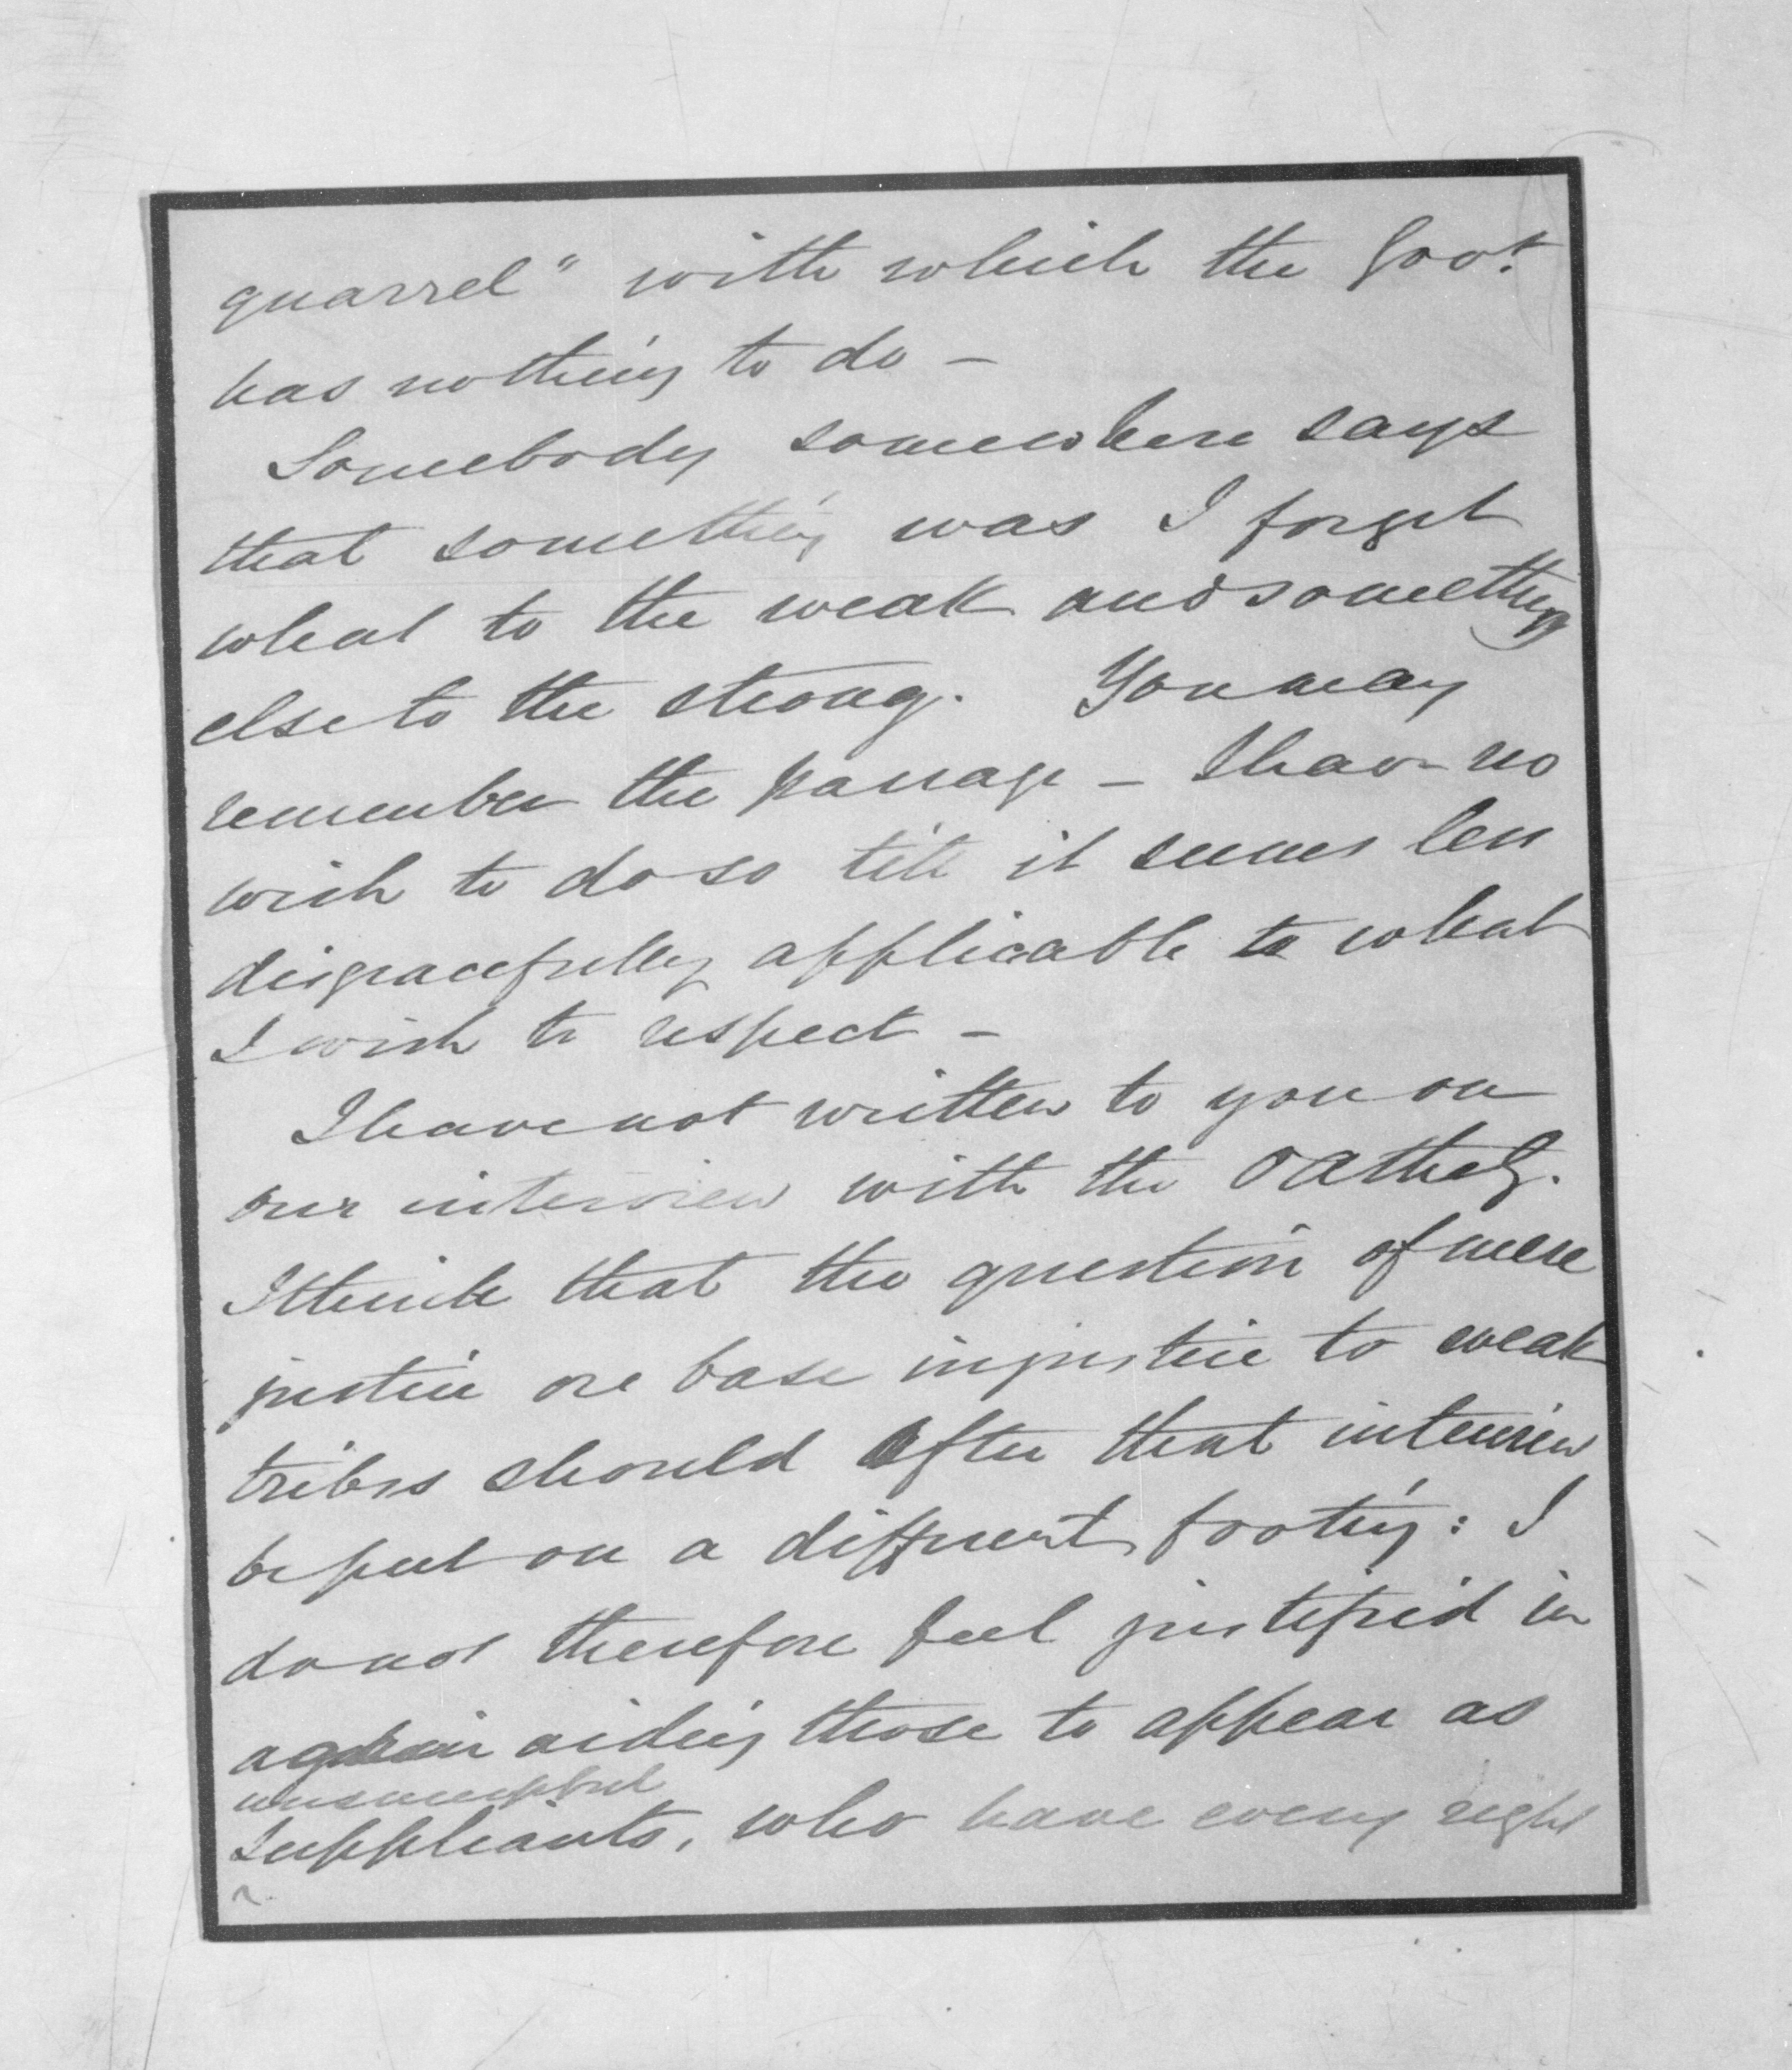 quarrel" with which the Govt.
has nothing to do -
Somebody somewhere says
that something was I forget
what to the weak and something
else to the strong. You may
remember the passage - I have no
wish to do so till it seems less
disgracefully applicable to what
I wish to respect -
I have not written to you on
our interview with the
I think that the question of mere
justice or base injustice to weak
tribes should after that interview
be put on a different footing: I
do not therefore feel justified in
again aiding those to appear as
unsuccessful
suppliants, who have every right